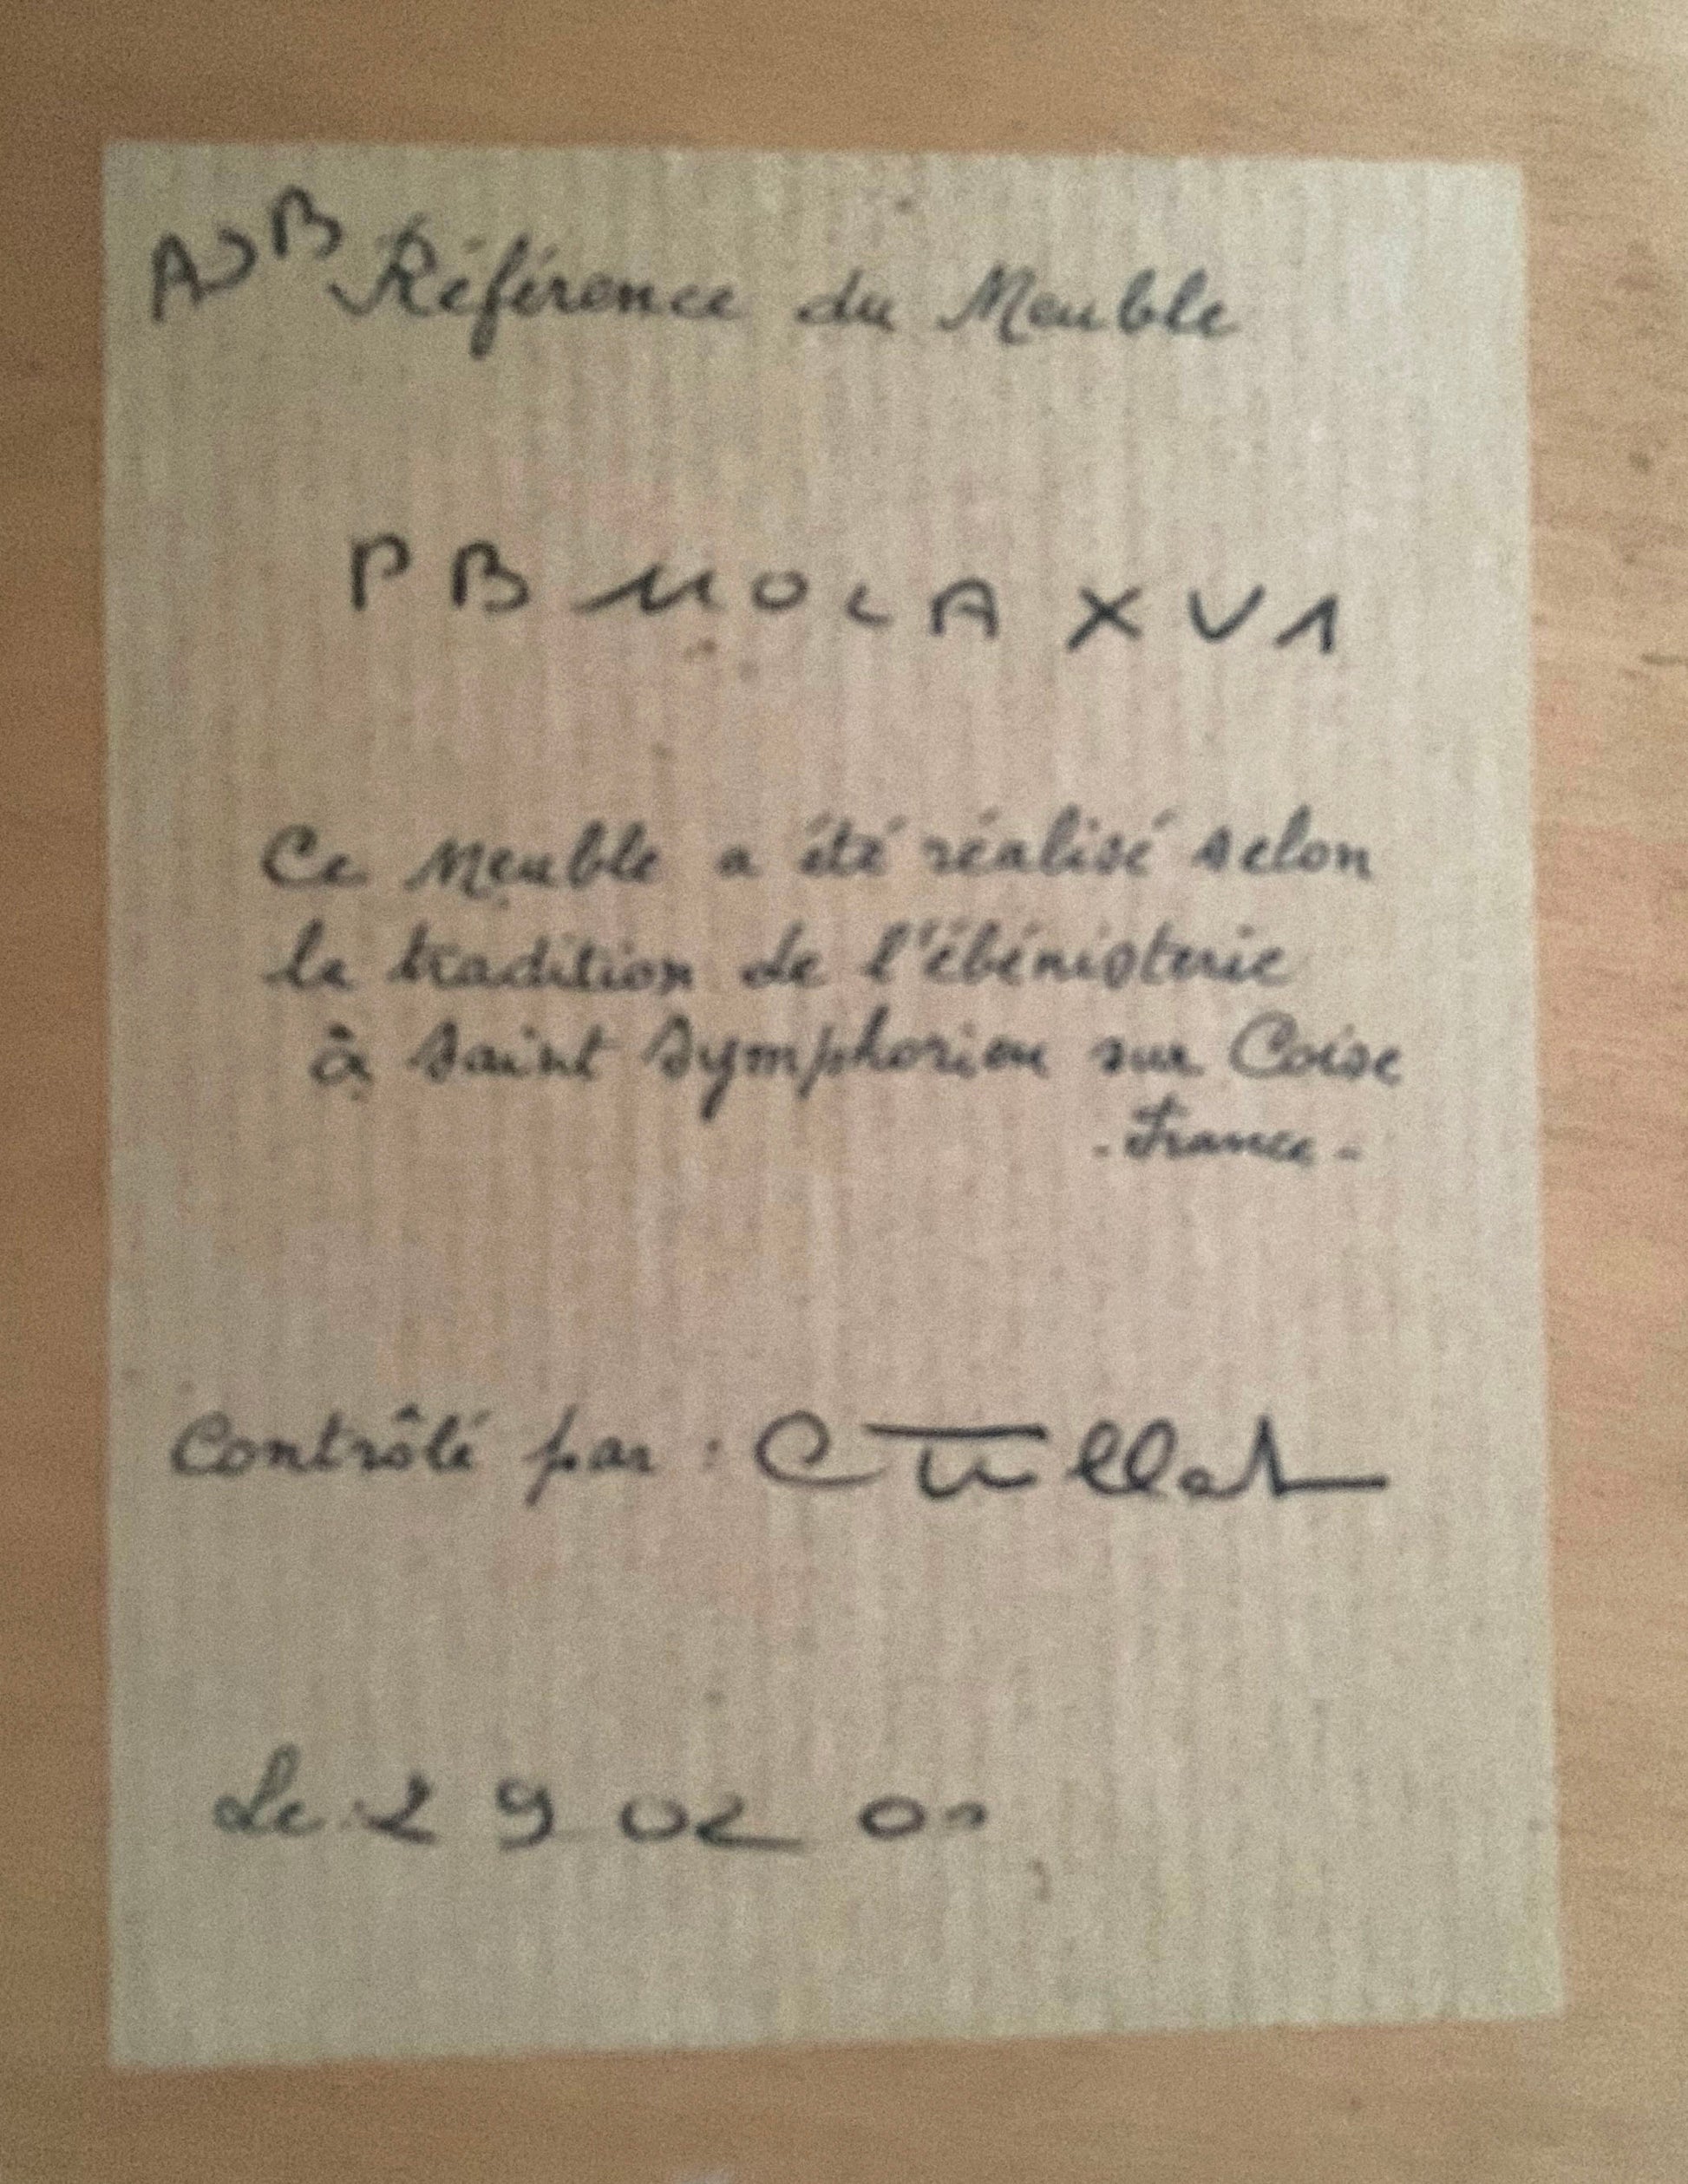 Référence du Meuble
PB MOLA XV1
Ce Meuble a été réalisé selon
la tradition de l'ébénisterie
à Saint Symphorien sur Coise
- France -
Contrôlé par :
Le 29 02